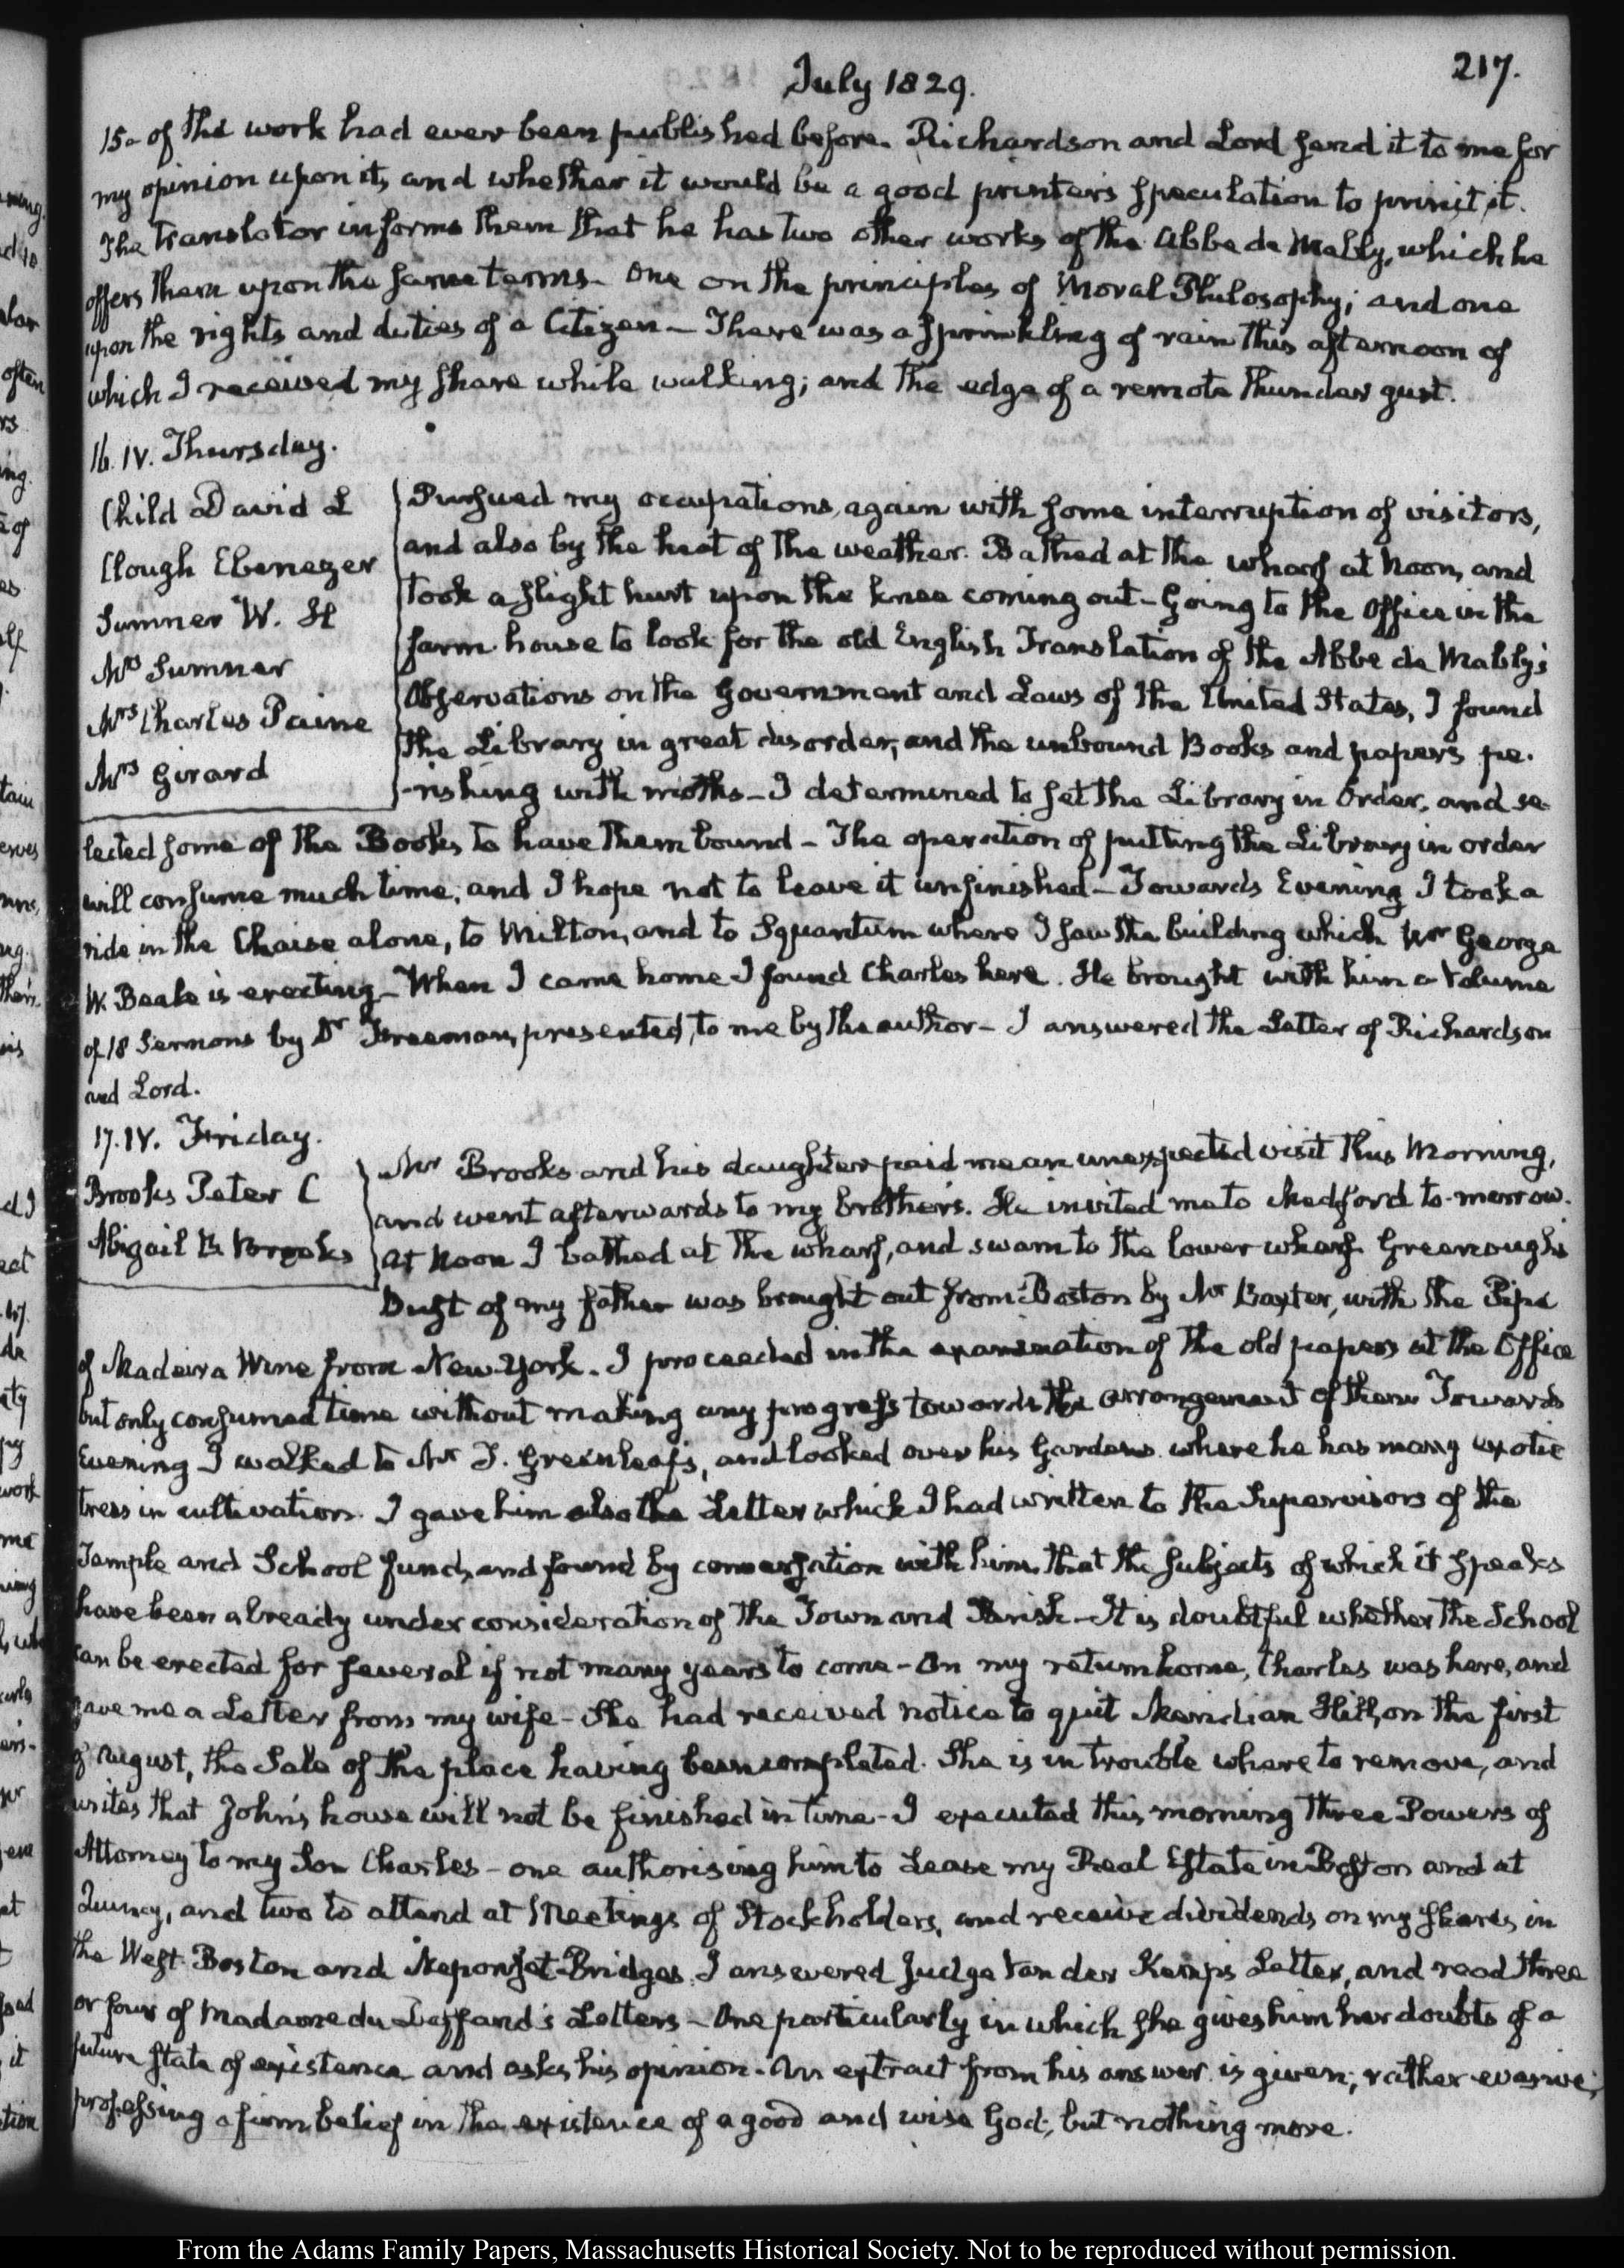 217.
July 1829.
15- of the work had ever been published before. Richardson and Lord send it to me for
my opinion upon it, and whether it would be a good printer's speculation to print it.
The translator informs them that he has two other works of the Abbe de Mably, which he
offers them upon the same terms. One on the principles of Moral Philosophy; and one
upon the rights and duties of a Citizen - There was a sprinkling of rain this afternoon of
which I received my share while walking; and the edge of a remote thunder gust.
16. IV. Thursday.
Child David L
Clough Ebenezer
Sumner W. H
Mrs Sumner
Mrs Charles Paine
Mrs Girard
Pursued my occupations, again with some interruption of visitors,
and also by the heat of the weather. Bathed at the wharf at Noon, and
took a slight hurt upon the knee coming out - Going to the Office in the
farm-house to look for the old English Translation of the Abbe de Mably's
Observations on the Government and Laws of the United States, I found
the Library in great disorder, and the unbound Books and papers pe-
-rishing with moths - I determined to set the Library in Order, and se-
lected some of the Books to have them bound - The operation of putting the Library in order
will consume much time, and I hope not to leave it unfinished - Towards Evening I took a
ride in the Chaise alone, to Milton, and to Squantum where I saw the building which Mr George
W. Beale is erecting - When I came home I found Charles here. He brought with him a Volume
of 18 Sermons by Dr Freeman, presented to me by the author - I answered the Letter of Richardson
and Lord.
17. IV. Friday.
Brooks Peter C
Abigail B Brooks
Mr Brooks and his daughter paid me an unexpected visit this Morning,
and went afterwards to my brother's. He invited me to Medford to-morrow.
At Noon I bathed at the wharf, and swam to the lower wharf. Greenough's
Bust of my father was brought out from Boston by Mr Baxter, with the Pipe
of Madeira Wine from New York. I proceeded in the examination of the old papers at the Office
but only consumed time without making any progress towards the arrangement of them Towards
Evening I walked to Mr T. Greenleaf's, and looked over his Gardens where he has many exotic
trees in cultivation. I gave him also the Letter which I had written to the Supervisors of the
Temple and School fund, and found by conversation with him, that the subjects of which it speaks
have been already under consideration of the Town and Parish - It is doubtful whether the School
can be erected for several if not many years to come - On my return home, Charles was here, and
gave me a Letter from my wife - She had received notice to quit Meridian Hill, on the first
of August, the Sale of the place having been completed. She is in trouble where to remove, and
writes that John's house will not be finished in time - I executed this morning three Powers of
Attorney to my Son Charles - one authorising him to Lease my Real Estate in Boston and at
Quincy, and two to attend at Meetings of Stockholders, and receive dividends on my shares, in
the West-Boston and Neponset-Bridges. I answered Judge Van der Kemp's Letter, and read three
or four of Madame du Deffand's Letters - One particularly in which she gives him her doubts of a
future state of existence and asks his opinion. An extract from his answer is given; rather evasive;
professing a firm belief in the existence of a good and wise God; but nothing more.
From the Adams Family Papers, Massachusetts Historical Society. Not to be reproduced without permission.